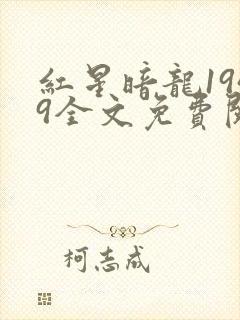 紅星暗龍19
9全文免費
柯志成